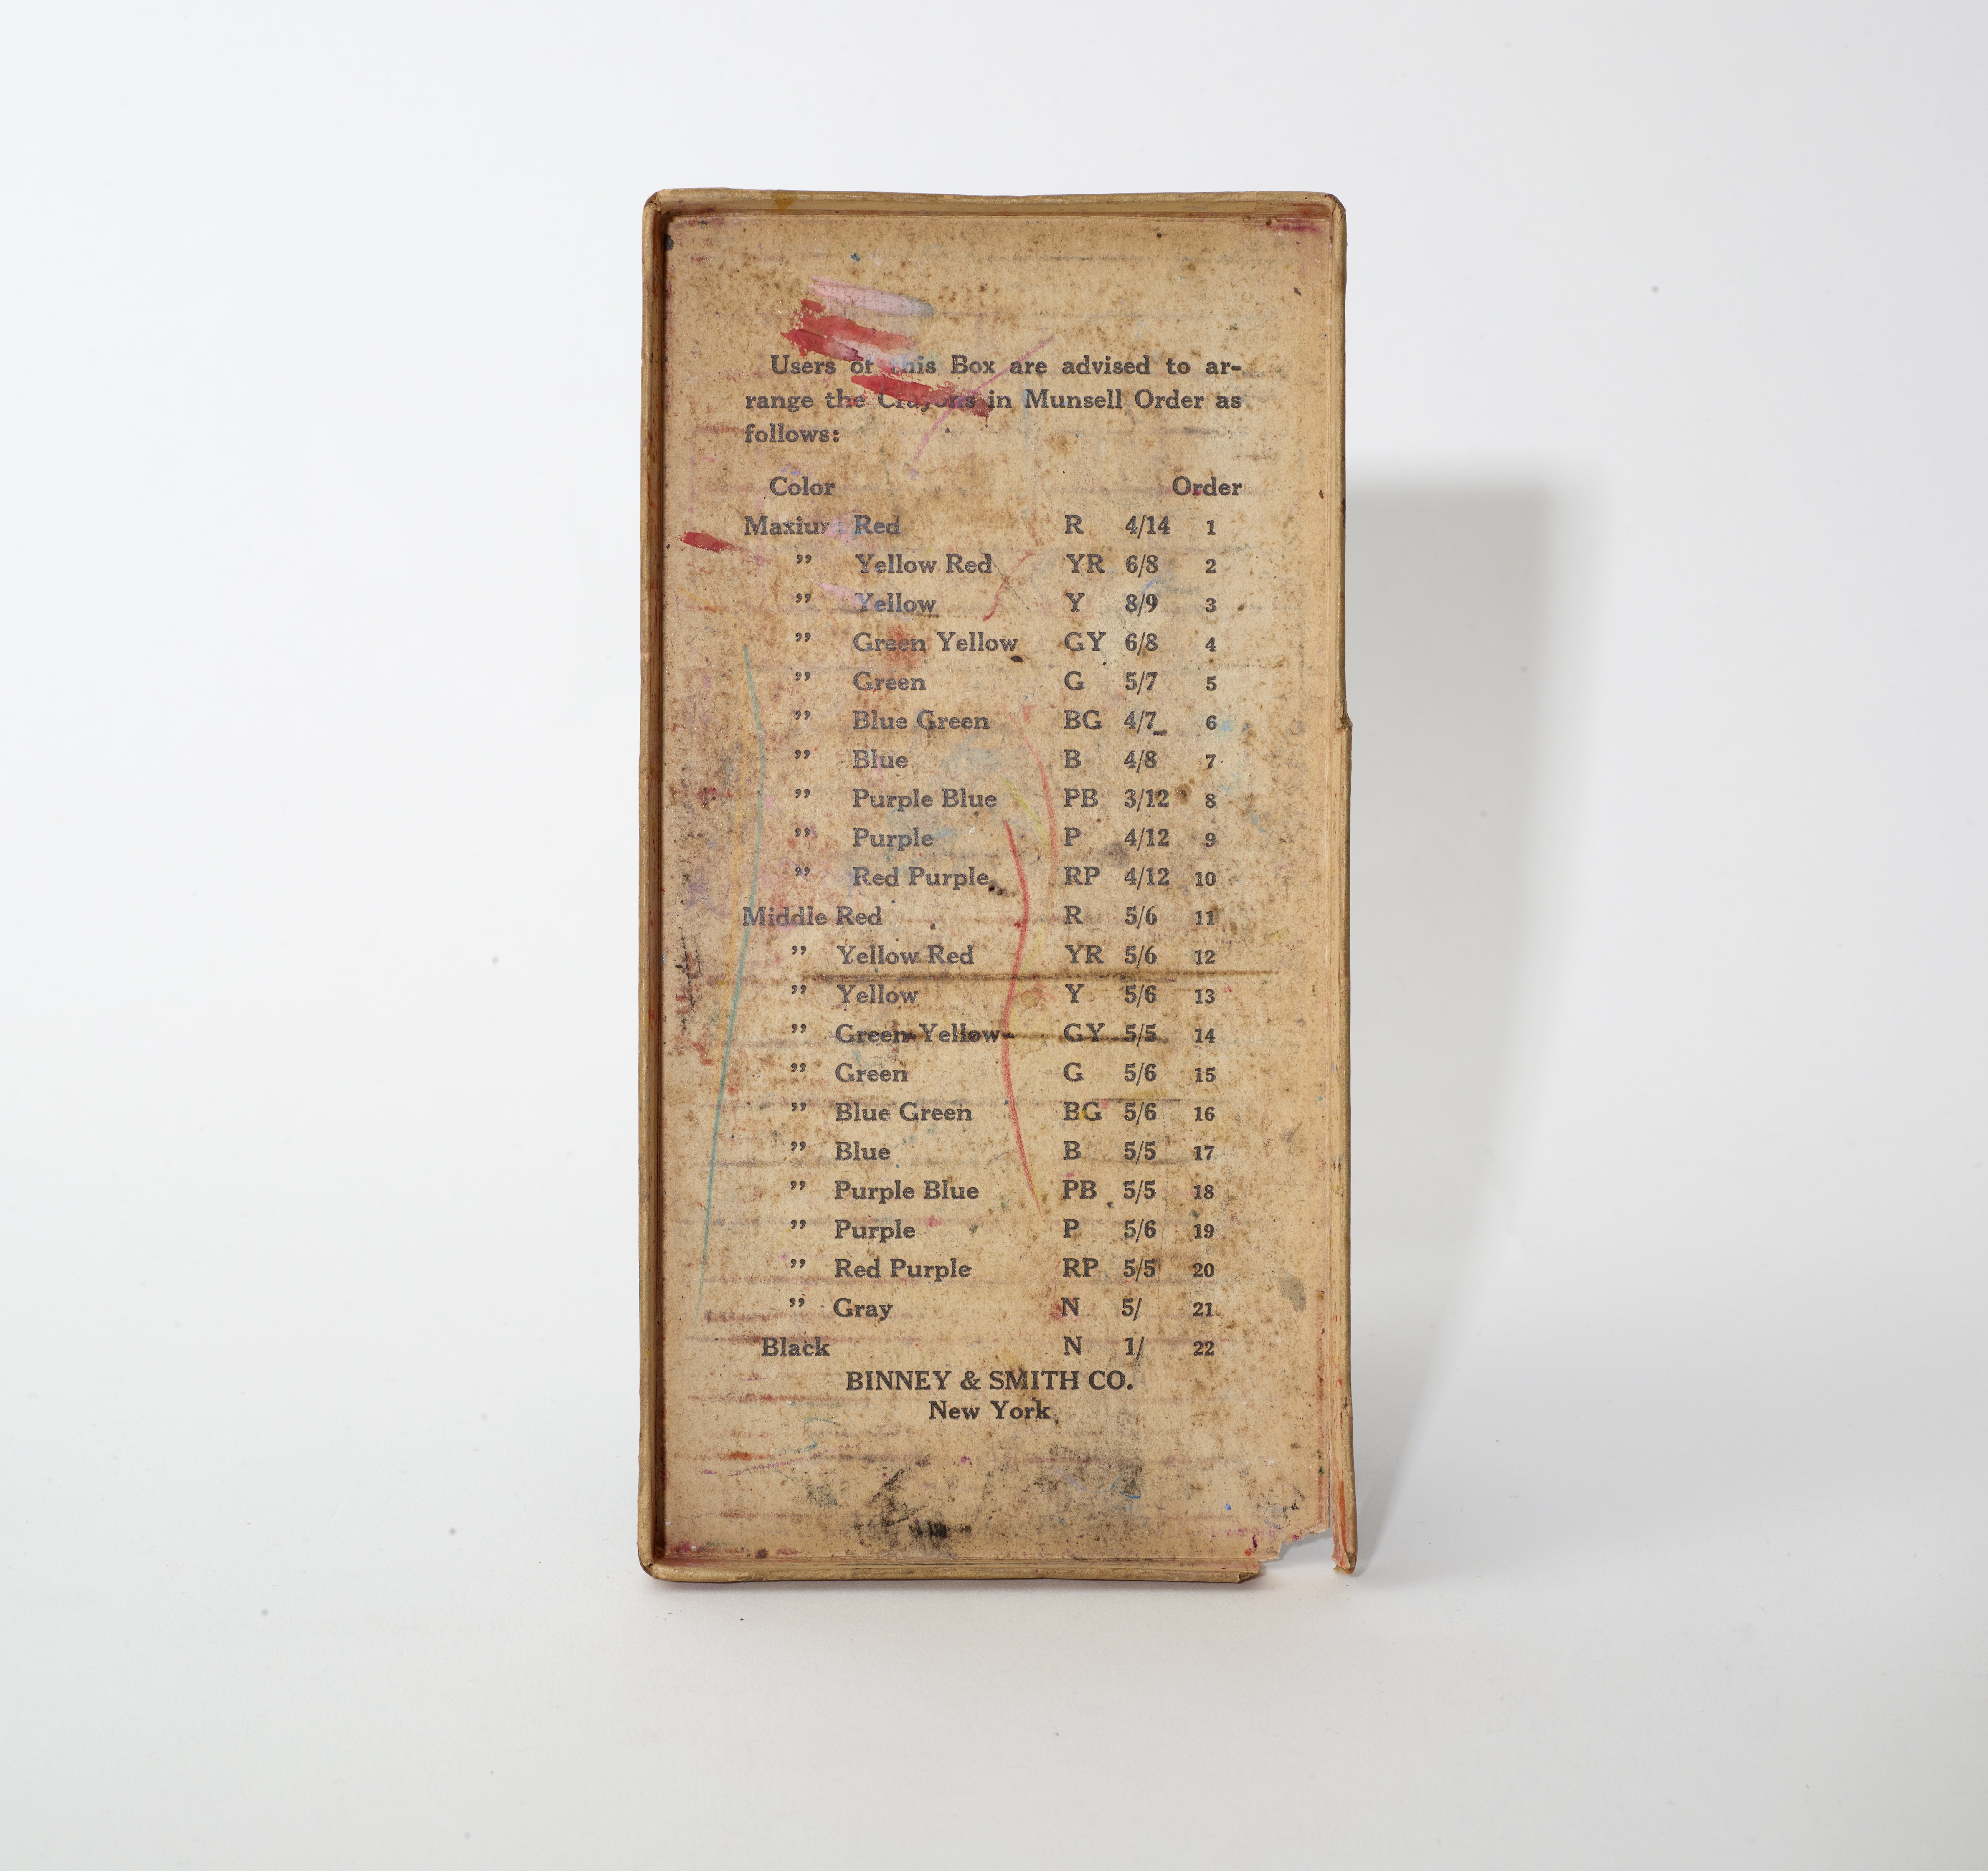 Users of this Box are advised to ar-
range the Crayons in Munsell Order as
follows:
Color Order
Maxium Red R 4/14 1
” Yellow Red YR 6/8 2
” Yellow Y 8/9 3
” Green Yellow GY 6/8 4
” Green G 5/7 5
” Blue Green BG 4/7 6
” Blue B 4/8 7
” Purple Blue PB 3/12 8
” Purple P 4/12 9
” Red Purple RP 4/12 10
Middle Red R 5/6 11
” Yellow Red YR 5/6 12
” Yellow Y 5/6 13
” Green Yellow GY 5/5 14
” Green G 5/6 15
” Blue Green BG 5/6 16
” Blue B 5/5 17
” Purple Blue PB 5/5 18
” Purple P 5/6 19
” Red Purple RP 5/5 20
” Gray N 5/ 21
Black N 1/ 22
BINNEY & SMITH CO.
New York